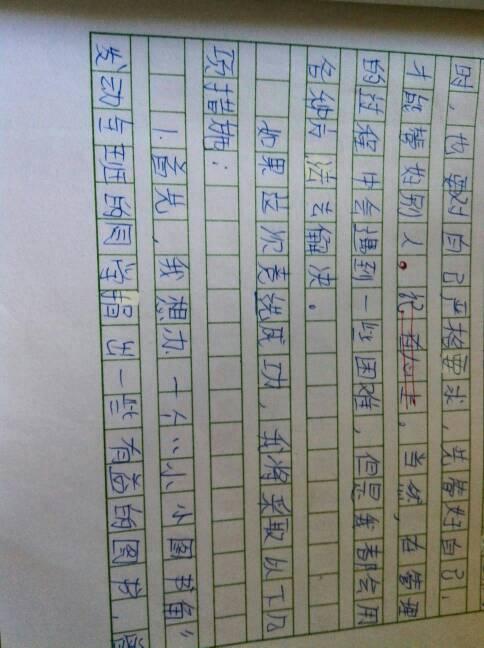 时，也要对自己严格要求，先管好自己，
才能管好别人。当然，在管理
的过程中会遇到一些困难，但是我都会用
各种方法去解决。
如果这次竞选成功，我将采取以下几
项措施：
1.首先，我想办一个“小小图书角”
发动全班的同学捐出一些有益的图书，